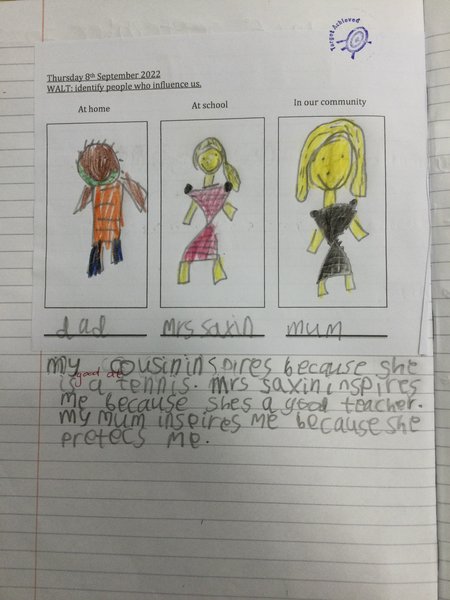 Target Achieved
Thursday 8th September 2022
WALT: identify people who influence us.
At home
At school
In our community
dad
mrs saxin
mum
my cousin inspires because she
good at
is a tennis. mrs saxin inspires
me because shes a good teacher.
my mum inspires me because she
pretecs me.